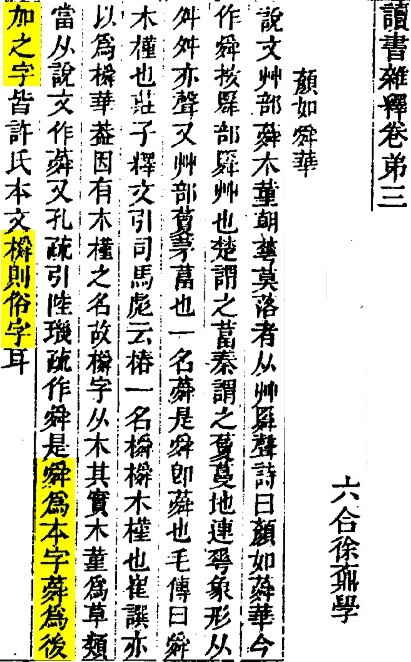 讀書雜釋卷弟三
六合徐鼒學
顏如舜華
說文艸部蕣木菫朝華莫落者从艸䑞聲詩曰顏如蕣華今
作舜按䑞部䑞艸也楚謂之葍秦謂之藑蔓地連華象形从
舛舛亦聲又艸部藑茅葍也一名蕣是舜卽蕣也毛傳曰舜
木槿也莊子釋文引司馬彪云椿一名橓橓木槿也崔譔亦
以爲橓華葢因有木槿之名故橓字从木其實木菫爲草類
當从說文作蕣又孔疏引陸璣疏作舜是舜爲本字蕣爲後
加之字皆許氏本文橓則俗字耳